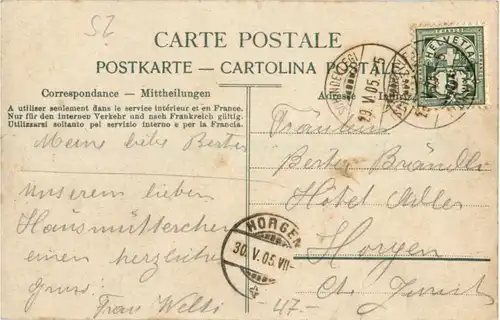 52
CARTE POSTALE
POSTKARTE — CARTOLINA POSTALE
Correspondance — Mittheilungen
A utiliser seulement dans le service intérieur et en France.
Nur für den Internen Verkehr und nach Frankreich gültig.
Utilizzarsi soltanto pel servizio interno e per la Francia.
Meine liebe Berter
Unserem lieben
Hausmütterchen
einen herzlichen
Gruss
Frau Welti
HELVETIA
FRANCO
29 V.05
Fräulein
Berter Brändli
Hotel Adler
Horgen
Ct. Zürich
HORGEN
30.V.05.VII
47.-